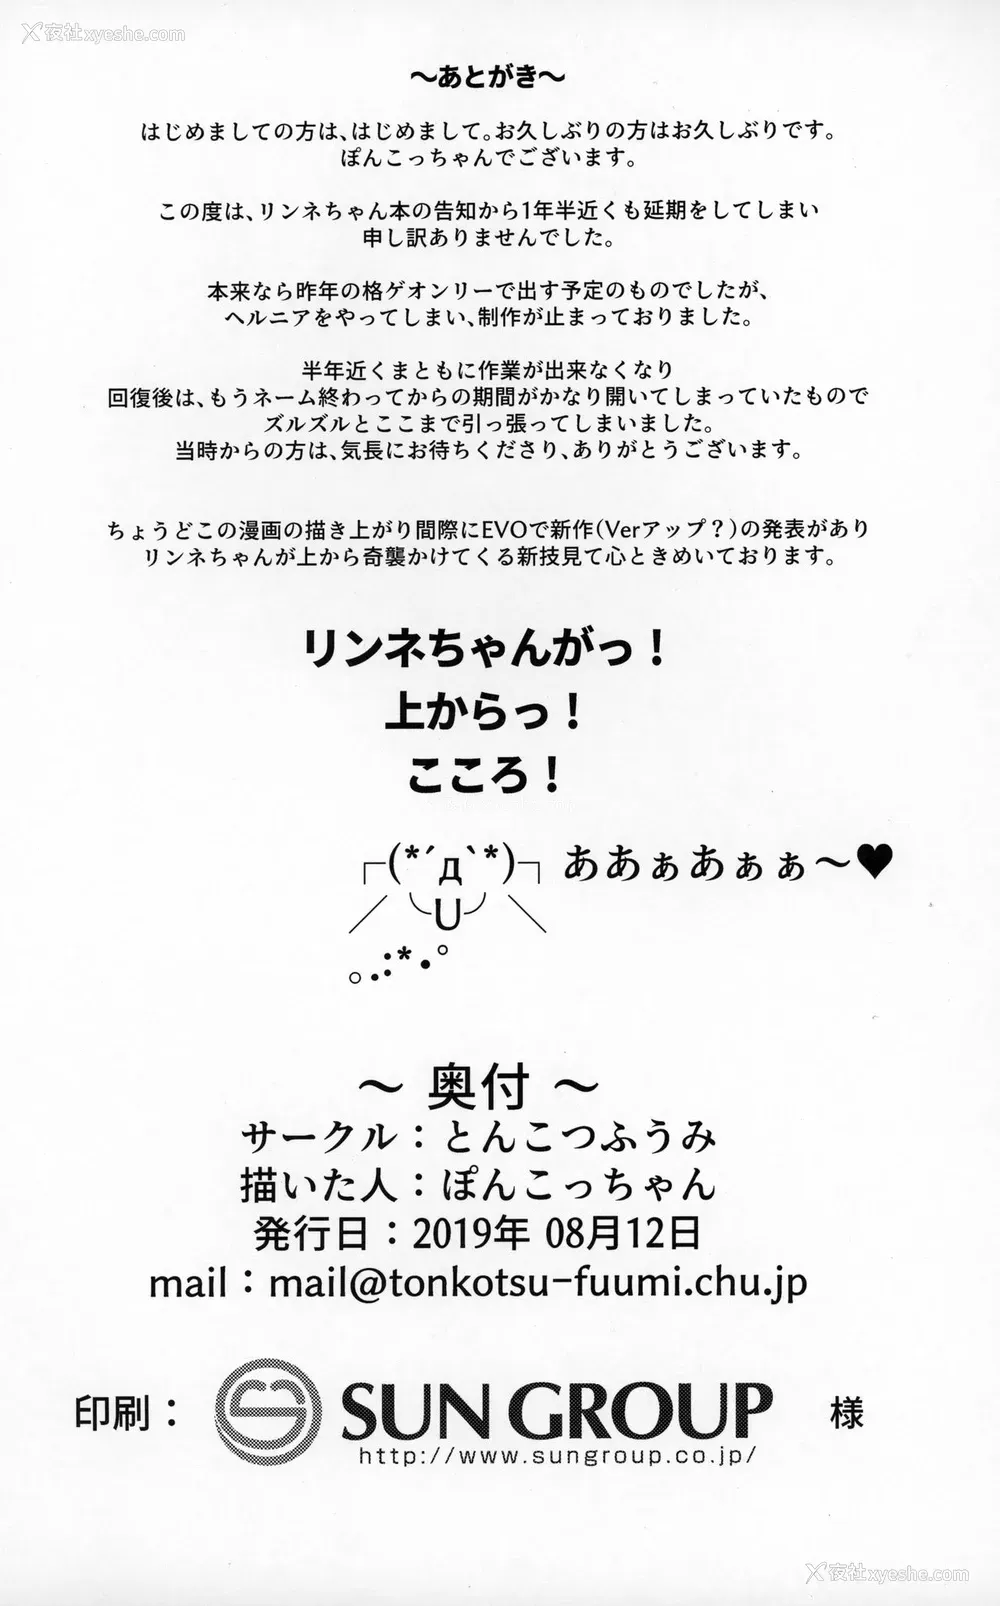 夜社xyeshe.com
～あとがき～
はじめましての方は、はじめまして。お久しぶりの方はお久しぶりです。
ぽんこっちゃんでございます。
この度は、リンネちゃん本の告知から1年半近くも延期をしてしまい
申し訳ありませんでした。
本来なら昨年の格ゲオンリーで出す予定のものでしたが、
ヘルニアをやってしまい、制作が止まっておりました。
半年近くまともに作業が出来なくなり
回復後は、もうネーム終わってからの期間がかなり開いてしまっていたもので
ズルズルとここまで引っ張ってしまいました。
当時からの方は、気長にお待ちくださり、ありがとうございます。
ちょうどこの漫画の描き上がり間際にEVOで新作(Verアップ？)の発表があり
リンネちゃんが上から奇襲かけてくる新技見て心ときめいております。
リンネちゃんがっ！
上からっ！
こころ！
┌(*´д`*)┐ ああぁあぁぁ～♥
／╰U╯＼
○.:*•°
～ 奥付 ～
サークル：とんこつふうみ
描いた人：ぽんこっちゃん
発行日：2019年 08月12日
mail：mail@tonkotsu-fuumi.chu.jp
印刷： SUN GROUP 様
http://www.sungroup.co.jp/
夜社xyeshe.com